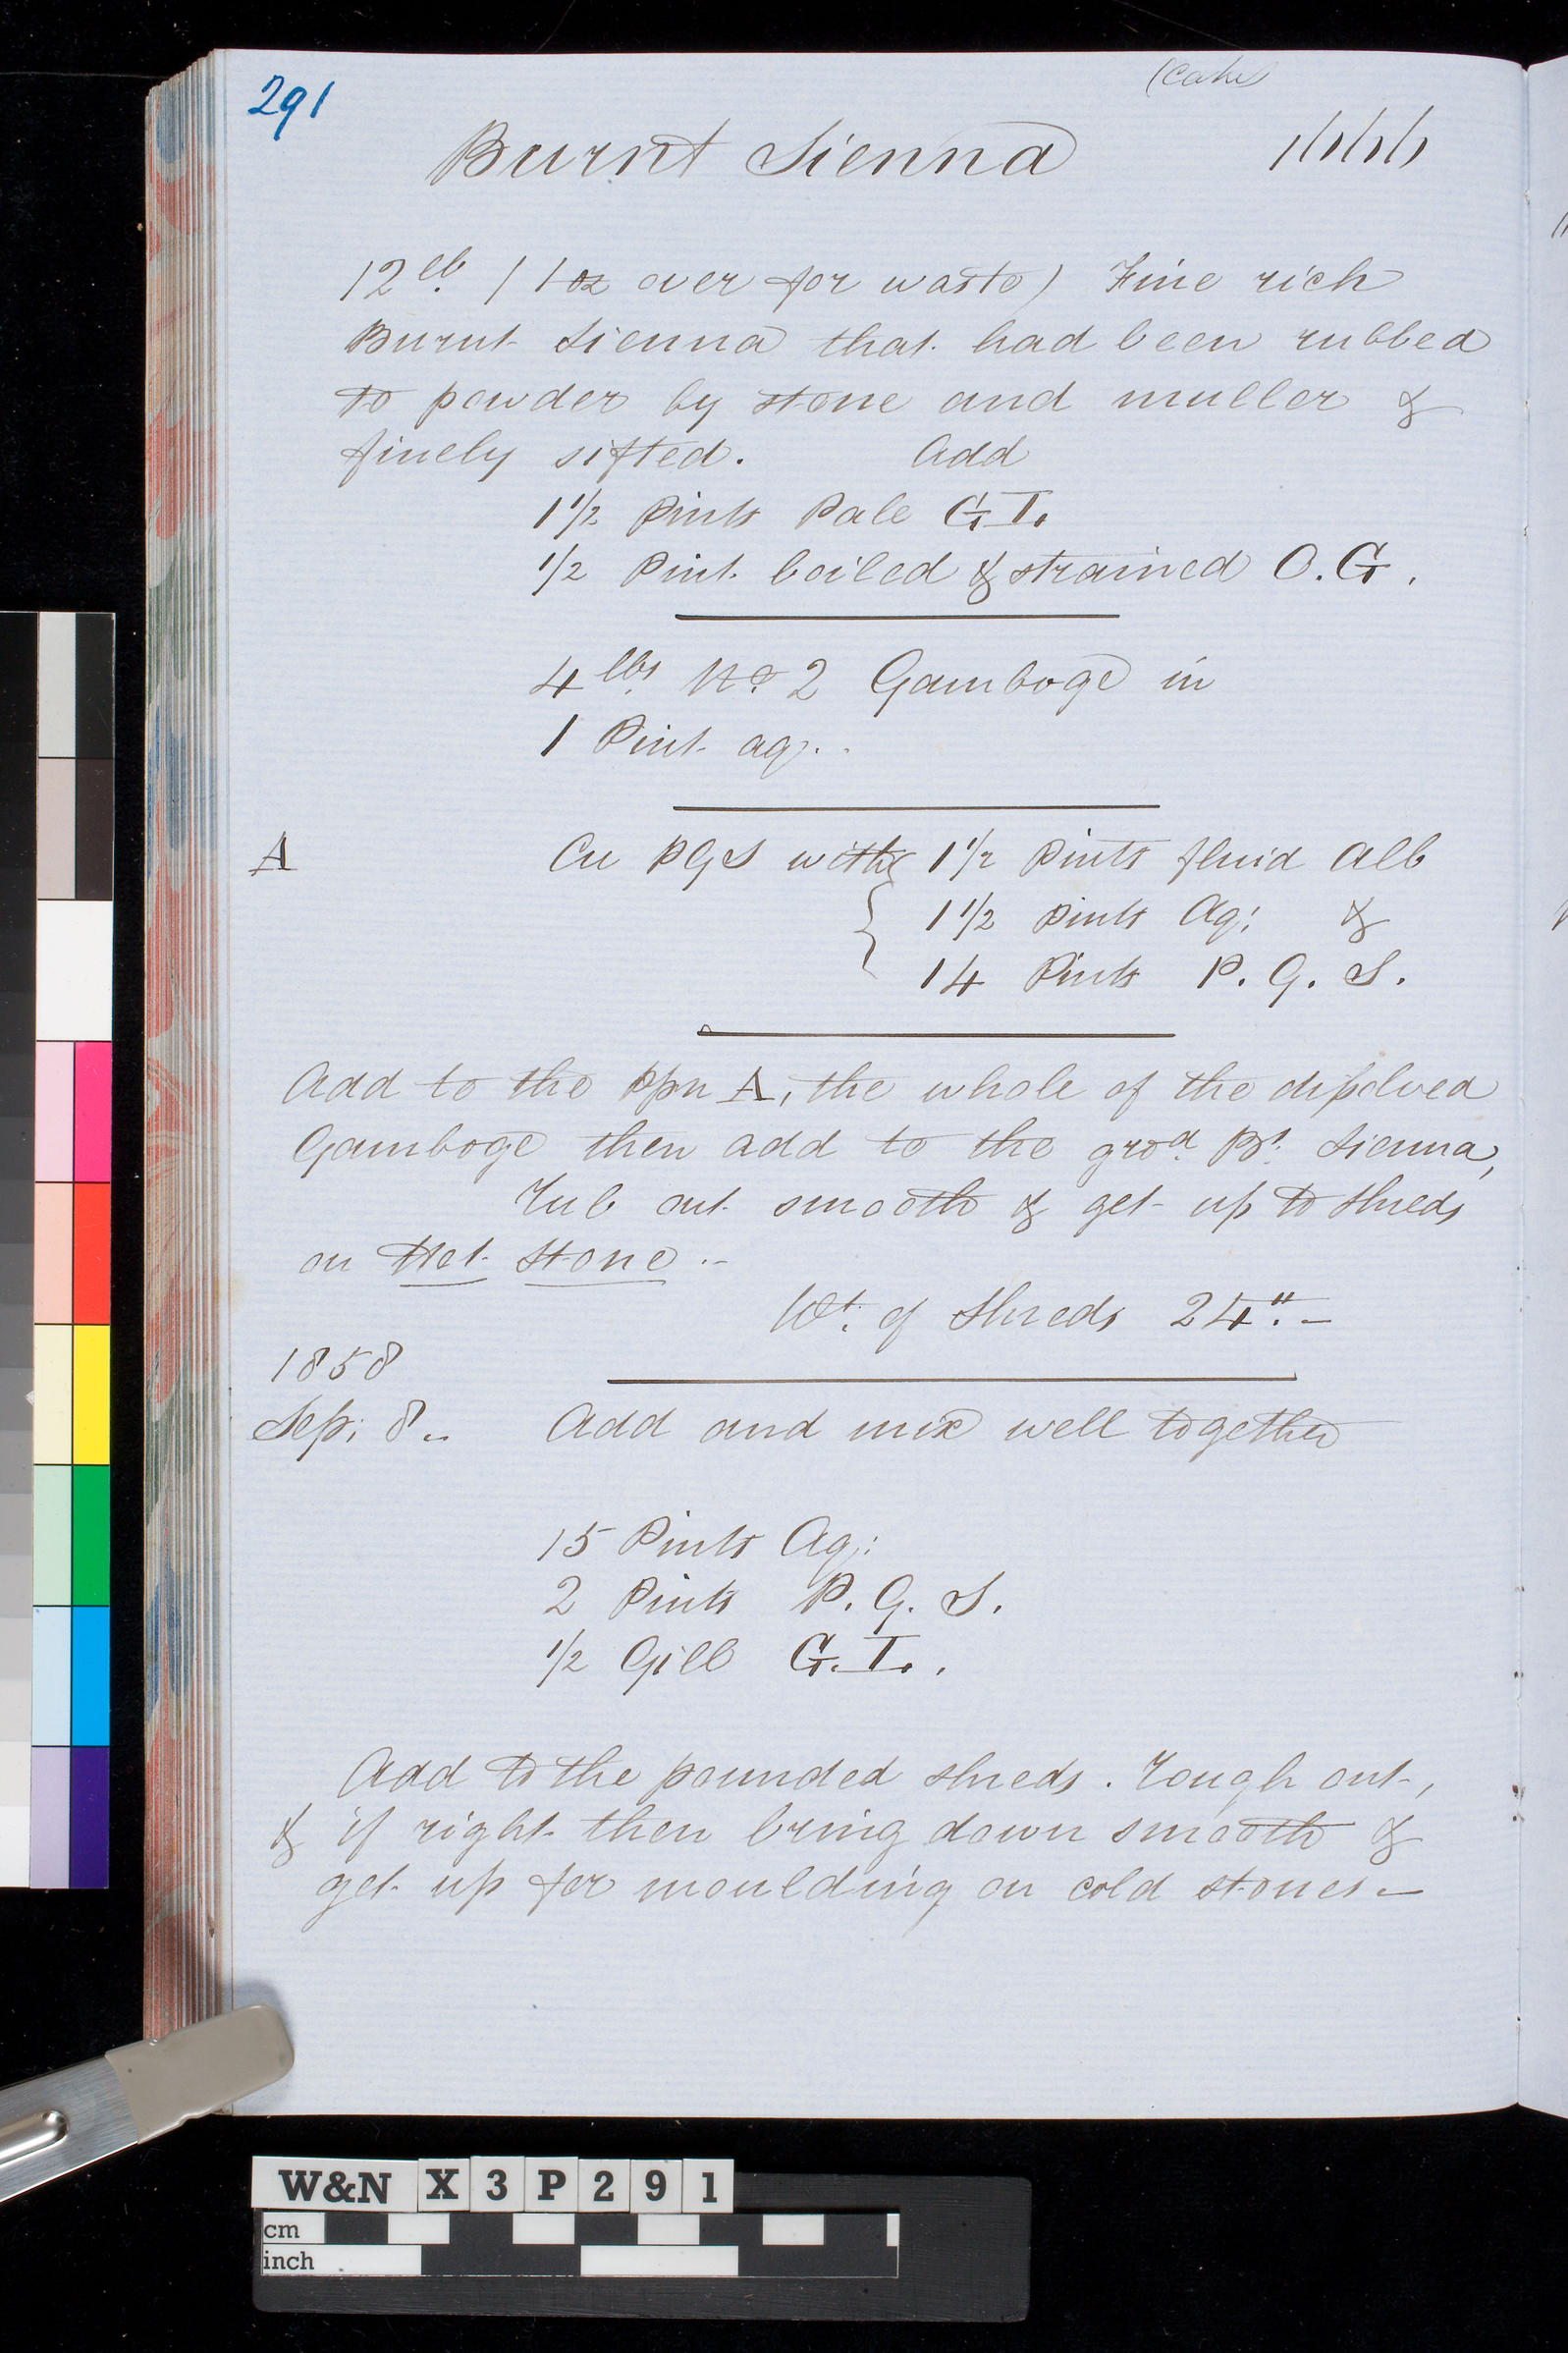 291
(Cake)
Burnt Sienna 1/1/1/1/
12 lb. (1 oz over for waste) Fine rich
Burnt Sienna that had been rubbed
to powder by stone and muller &
finely sifted. Add
1 1/2 Pints Pale G T.
1/2 Pint boiled & strained O.G.
4 lbs. No. 2 Gamboge in
1 Pint aq..
A Cu PGS with { 1 1/2 Pints fluid Alb
1 1/2 Pints Aq: &
14 Pints P. G. S.
Add to the Ppn A, the whole of the dissolved
Gamboge then add to the grod. Bt. Sienna,
Rub out smooth & get up to shreds
on Hot Stone.-
Wt. of Shreds 24".-
1858
Sep: 8.. Add and mix well together
15 Pints Aq:
2 Pints P. G. S.
1/2 Gill G.T..
Add to the pounded shreds. Rough out,
& if right then bring down smooth &
get up for moulding on cold stones.-
W&N X3P291
cm
inch